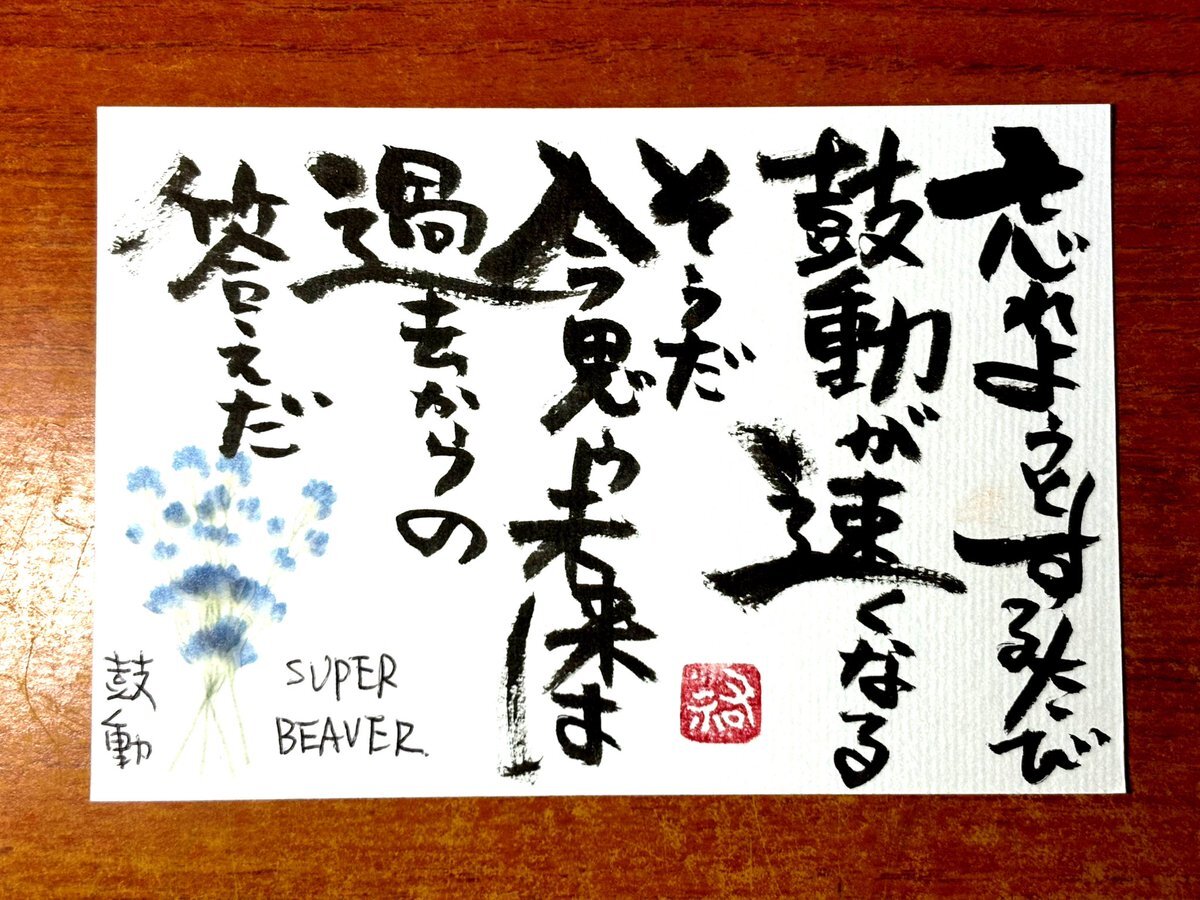 忘れようとするたび
鼓動が速くなる
そうだ
今思や未来は
過去からの
答えだ
鼓動
SUPER
BEAVER.